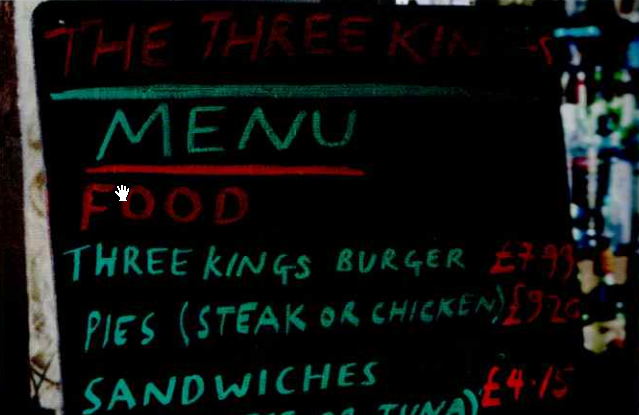 THE THREE KINGS
MENU
FOOD
THREE KINGS BURGER £7.99
PIES (STEAK OR CHICKEN) £9.20
SANDWICHES £4.15
OR TUNA)